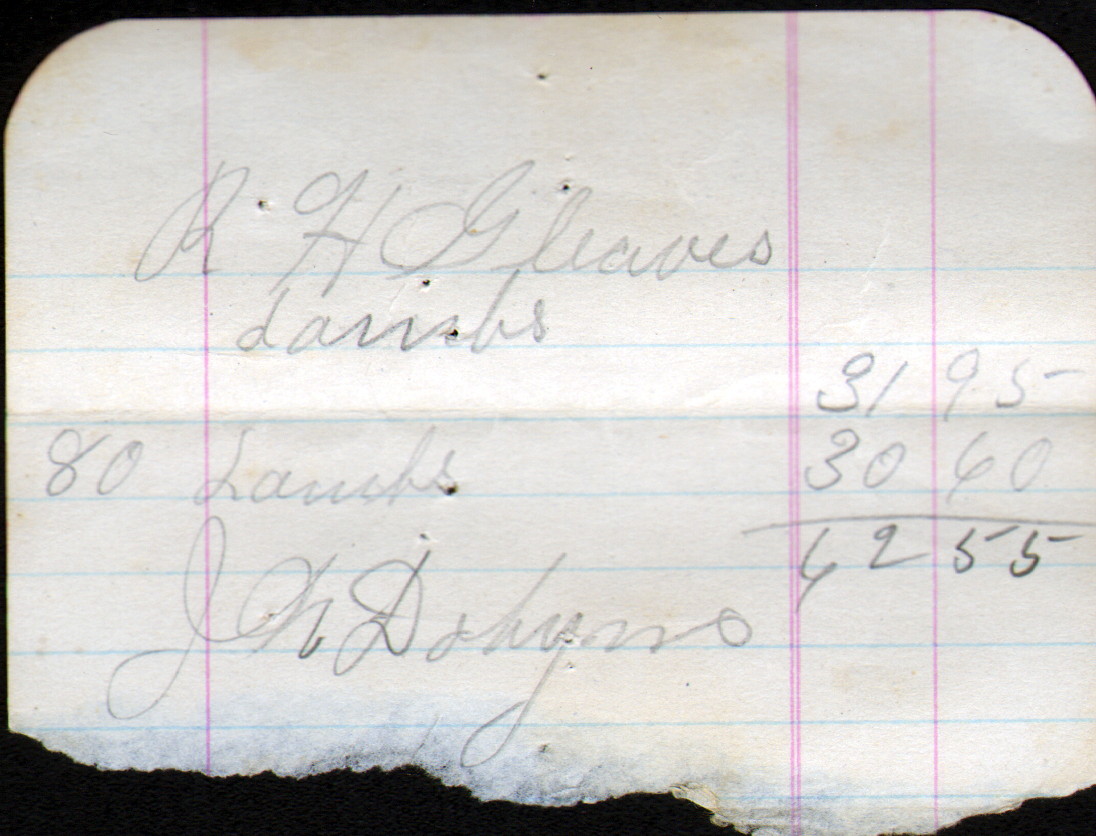 R H Gleaves
Lambs
31 95
80 Lambs 30 60
62 55
J W Dobyns